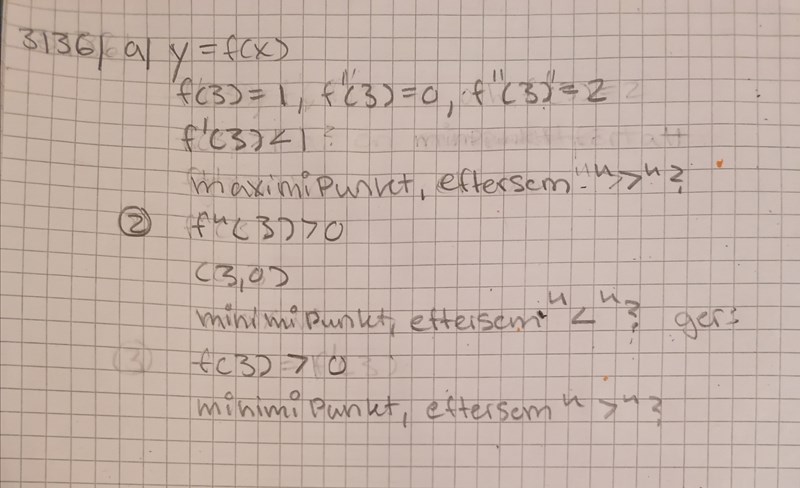 3136/ a/ y = f(x)
f(3) = 1, f'(3) = 0, f''(3) = 2
f'(3) < 1 ?
maximipunkt, eftersom "">"?
② f"(3) > 0
(3,0)
minimipunkt, eftersom "<"? ger:
(3) f(3) > 0
minimipunkt, eftersom ">"?